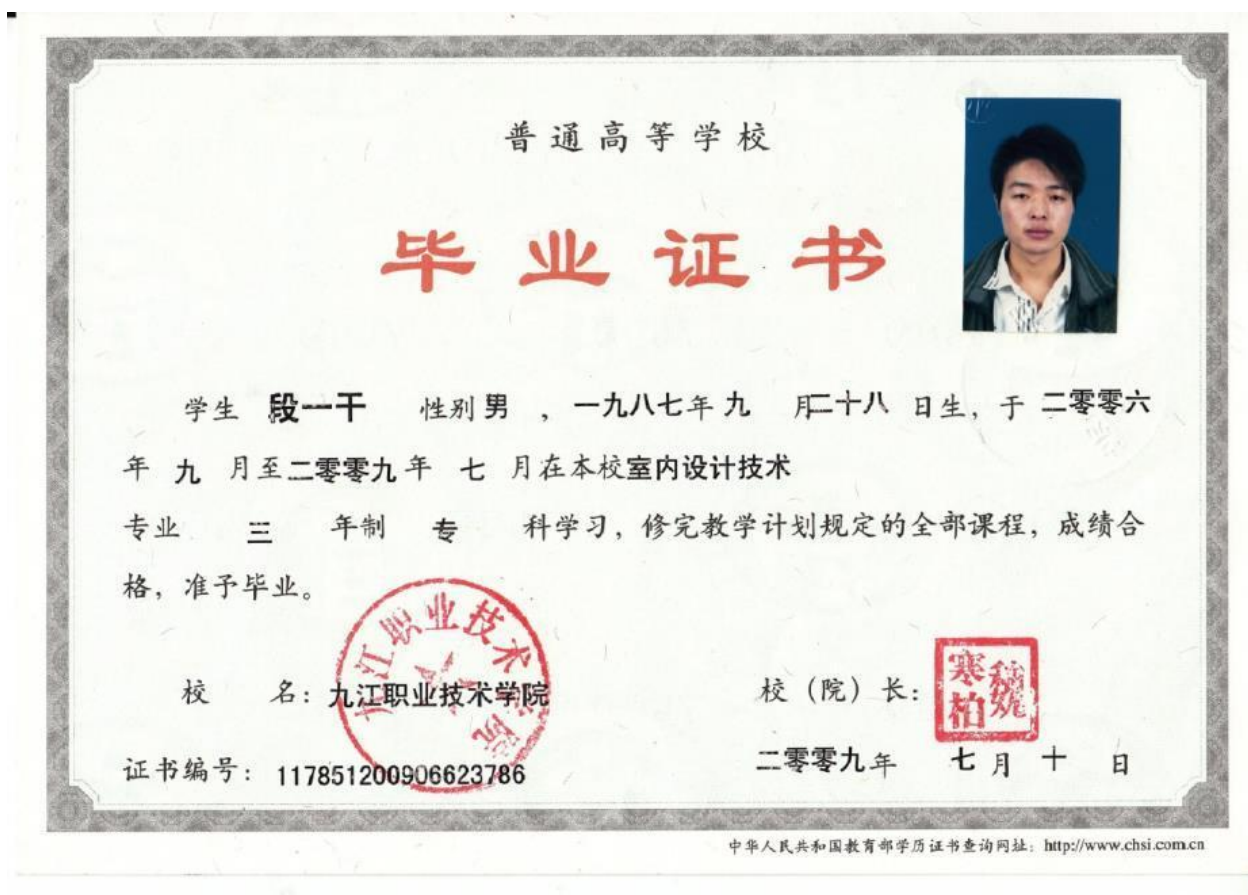 普通高等学校
毕业证书
学生 段一干 性别 男 ，一九八七年 九 月二十八 日生，于 二零零六
年 九 月至二零零九 年 七 月在本校室内设计技术
专业 三 年制 专 科学习，修完教学计划规定的全部课程，成绩合
格，准予毕业。
九江职业技术学院
校 名：九江职业技术学院
校（院）长：
寒柏
证书编号：117851200906623786
二零零九年 七 月 十 日
中华人民共和国教育部学历证书查询网址：http://www.chsi.com.cn